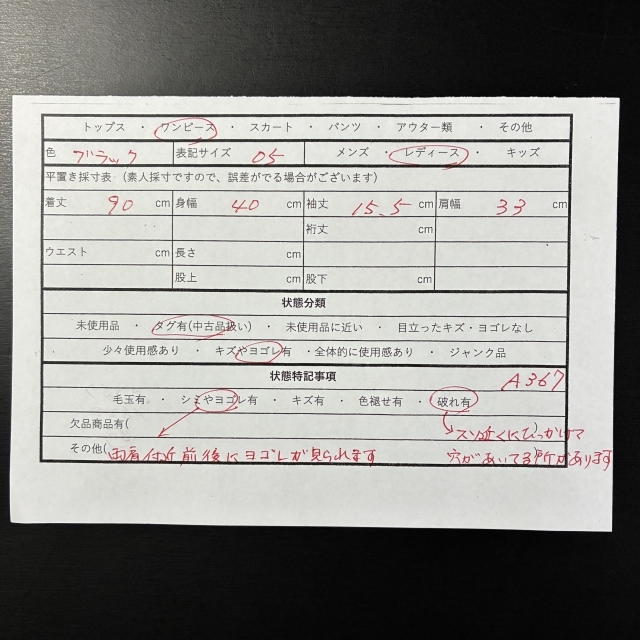 トップス ・ ワンピース ・ スカート ・ パンツ ・ アウター類 ・ その他
色 ブラック 表記サイズ 05 メンズ ・ レディース ・ キッズ
平置き採寸表 (素人採寸ですので、誤差がでる場合がございます)
着丈 90 cm 身幅 40 cm 袖丈 15.5 cm 肩幅 33 cm
裄丈 cm
ウエスト cm 長さ cm
股上 cm 股下 cm
状態分類
未使用品 ・ タグ有(中古品扱い) ・ 未使用品に近い ・ 目立ったキズ・ヨゴレなし
少々使用感あり ・ キズやヨゴレ有 ・全体的に使用感あり ・ ジャンク品
状態特記事項 A367
毛玉有 ・ シミやヨゴレ有 ・ キズ有 ・ 色褪せ有 ・ 破れ有
欠品商品有( )
スソ近くにひっかけて
その他( 両肩付近前後にヨゴレが見られます
穴があいてる所があります